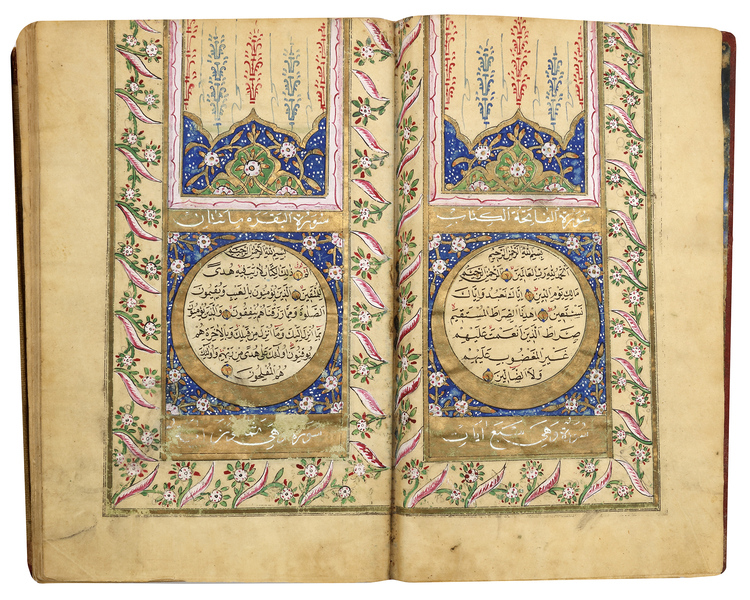 سورة الفاتحة الكتاب
بسم الله الرحمن الرحيم
الحمد لله رب العالمين الرحمن الرحيم
مالك يوم الدين اياك نعبد واياك
نستعين اهدنا الصراط المستقيم
صراط الذين انعمت عليهم
غير المغضوب عليهم
ولا الضالين
وهي سبع ايات
سورة البقره مائتان
بسم الله الرحمن الرحيم
الم ذلك الكتاب لا ريب فيه هدى
للمتقين الذين يؤمنون بالغيب ويقيمون
الصلوة ومما رزقناهم ينفقون والذين يؤمنون
بما انزل اليك وما انزل من قبلك وبالاخرة هم
يوقنون اولئك على هدى من ربهم واولئك
هم المفلحون